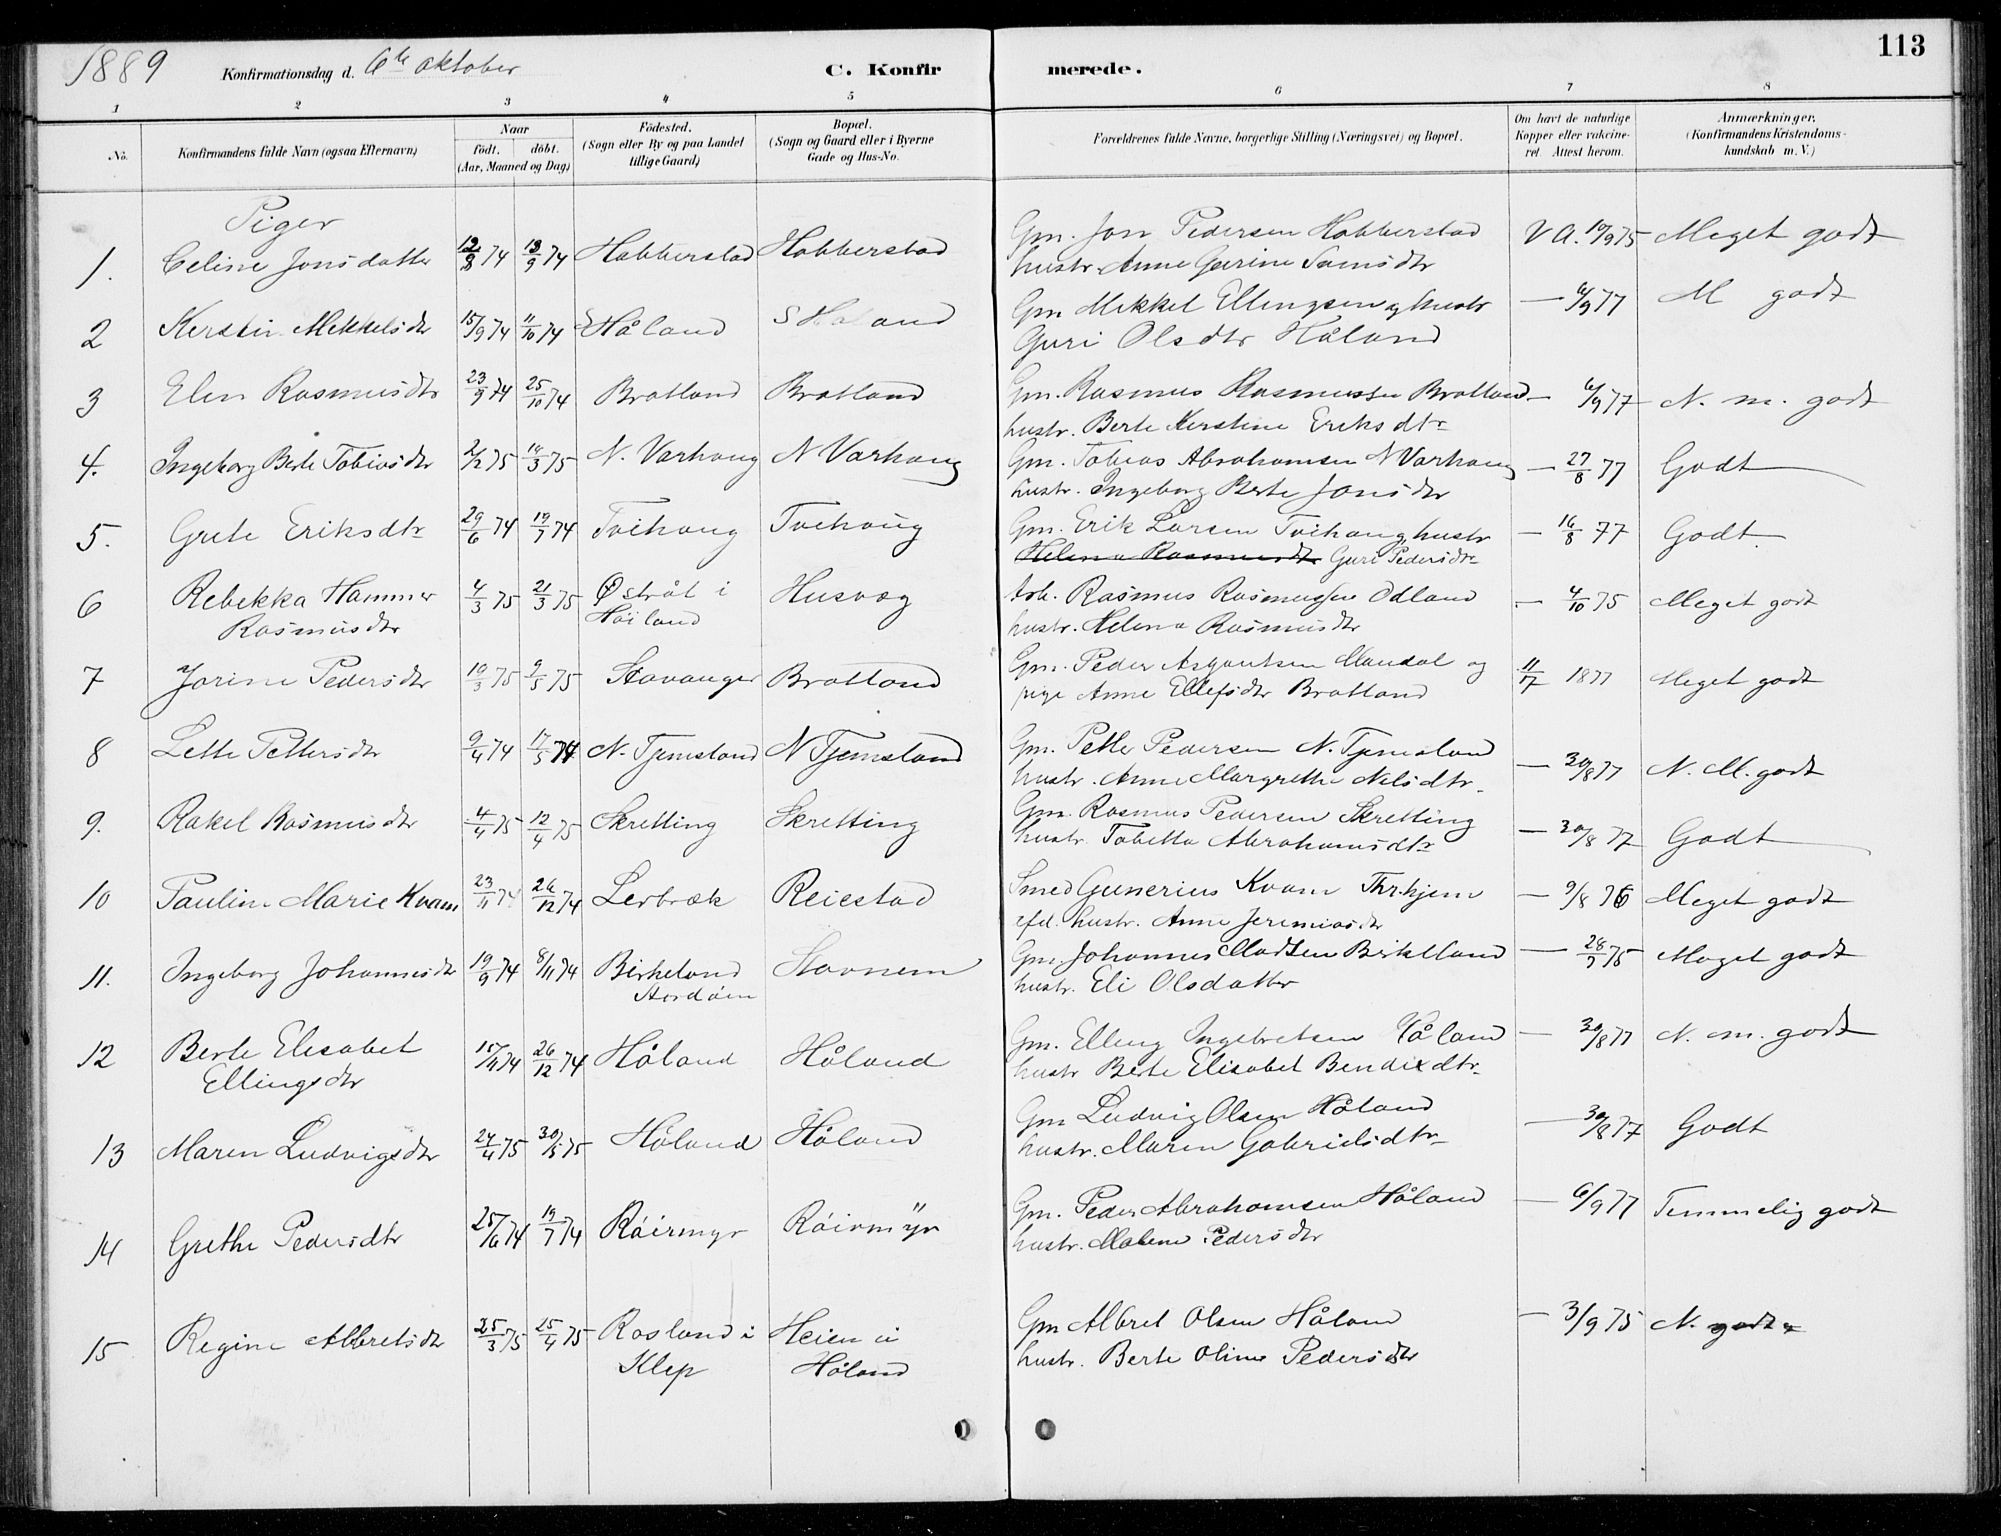 1889 Konfirmationsdag d. 6te oktober C. Konfirmerede. 113
1 2 3 4 5 6 7 8
No. Konfirmandens fulde Navn (ogsaa Efternavn) Naar födt. döbt. (Aar, Maaned og Dag) Födested. (Sogn eller By og paa Landet tillige Gaard) Bopæl. (Sogn og Gaard eller i Byerne Gade og Hus-No. Forældrenes fulde Navne, borgerlige Stilling (Næringsvei) og Bopæl. Om havt de naturlige Kopper eller vakcineret. Attest herom. Anmærkninger. (Konfirmandens Kristendomskundskab m. V.)
Piger
1. Celine Jonsdatter 74 13/9 74 Habberstad Habberstad Gm. Jon Pedersen Habberstad V A. 75 Meget godt
hustr. Anne Gurine
2 Kerstin Mekkelsdtr 15/9 74 11/10 74 Håland S Haland Gm Mekkel Ellingsen og hustr — 6/9 77 M godt
Guri Olsdtr Håland
3 Elen Rasmusdtr 23/9 74 25/10 74 Bratland Bratland Gm. Rasmus Rasmussen Bratland — 6/9 77 N. m. godt
hustr. Berte Kerstine Eriksdtr
4. Ingeborg Berte Tobiasdtr 2/2 75 14/3 75 N. Varhaug N Varhaug Gm. Tobias Abrahamsen N Varhaug — 27/8 77 Godt
hustr. Ingeborg Berte Jonsdtr
5. Grete Eriksdtr 29/6 74 19/7 74 Tvihaug Tvihaug Gm. Erik Larsen Tvihaug hustr — 16/8 77 Godt
Helena Rasmusdtr Guri Pedersdtr
6 Rebekka Hammer 4/3 75 21/3 75 Østråt i Husvæg Rasmus Rasmussen Odland — 4/10 75 Meget godt
Rasmusdtr Höiland hustr. Helena Rasmusdtr
7 Jorine Pedersdtr 10/3 75 9/5 75 Stavanger Bratland Gm. Peder Asgautsen Mandal og 11/7 1877 Meget godt
pige Anne Ellefsdtr Bratland
8 Lette Pettersdtr 9/4 74 17/5 74 N. Tjemsland N Tjemsland Gm. Petter Pedersen N. Tjemsland — 30/8 77 N. M. godt
hustr. Anne Margrethe Nilsdtr
9. Rakel Rasmusdtr 4/4 75 12/4 75 Skretting Skretting Gm. Rasmus Pedersen Skretting — 30/8 77 Godt
hustr Tabetta Abrahamsdtr
10 Pauline Marie Kvam 23/11 74 26/12 74 Lerbræk Reiestad Smed Gunerius Kvam — 9/8 76 Meget godt
hustr. Anne Jeremiasdtr
11. Ingeborg Johannesdtr 19/9 74 8/11 74 Birkeland Stavnem Gm. Johannes Madsen Birkeland — 28/7 75 Meget godt
hustr. Eli Olsdatter
12 Berte Elisabet 15/11 74 26/12 74 Håland Håland Gm. Elling Ingebretsen Håland — 30/8 77 N. m. godt
Ellingsdtr hustr Berte Elisabet Bendixdtr
13 Maren Ludvigsdtr 24/4 75 30/5 75 Håland Håland Gm Ludvig Olsen Håland — 30/8 77 Godt
hustr. Maren Gabrielsdtr
14 Grethe Pedersdtr 25/6 74 19/7 74 Röirmyr Röirmyr Gm. Peder Abrahamsen Håland — 6/9 77 Temmelig godt
hustr. Malene Pedersdtr
15 Regine Albretsdtr 25/3 75 25/4 75 Rosland i Heien i Gm Albret Olsen Håland — 3/9 75 N. godt
Klep Håland hustr. Berte Oline Pedersdtr